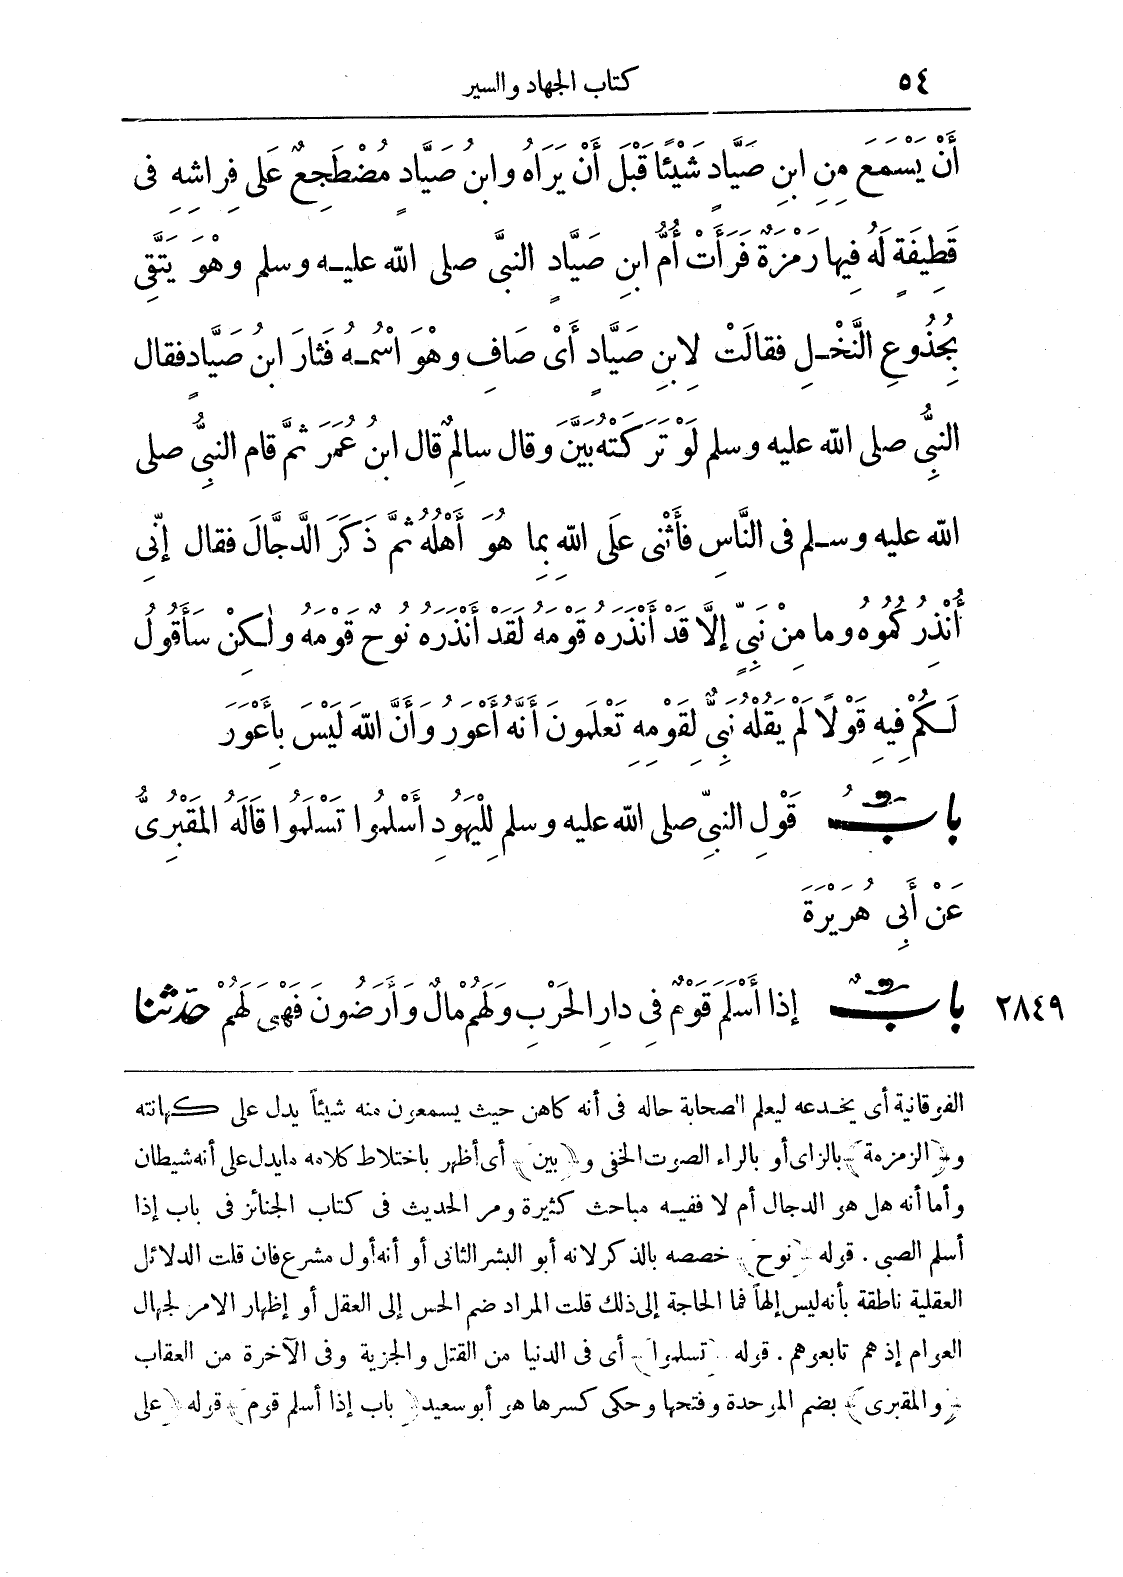 ٥٤ كتاب الجهاد والسير
أَنْ يَسْمَعَ مِنِ ابنِ صَيَّادٍ شَيْئًا قَبْلَ أَنْ يَرَاهُ وابنُ صَيَّادٍ مُضْطَجِعٌ عَلَى فِرَاشِهِ فى
قَطِيفَةٍ لَهُ فِيها رَمْزَةٌ فَرَأَتْ أُمُّ ابنِ صَيَّادٍ النبىَّ صلى الله عليه وسلم وهْوَ يَتَّقِى
بِجُذُوعِ النَّخْلِ فقالَتْ لِابنِ صَيَّادٍ أَىْ صَافِ وهْوَ اسْمُهُ فَثَارَ ابنُ صَيَّادٍ فقال
النبىُّ صلى الله عليه وسلم لَوْ تَرَكَتْهُ بَيَّنَ وقال سالِمٌ قال ابنُ عُمَرَ ثمَّ قام النبىُّ صلى
الله عليه وسلم فى النَّاسِ فأَثْنى عَلَى اللهِ بِما هُوَ أَهْلُهُ ثمَّ ذَكَرَ الدَّجَّالَ فقال إنّى
أُنْذِرُكُمُوهُ وما مِنْ نَبىٍّ إلَّا قَدْ أَنْذَرَهُ قَوْمَهُ لَقَدْ أَنْذَرَهُ نُوحٌ قَوْمَهُ ولٰكِنْ سَأَقُولُ
لَكُمْ فِيهِ قَوْلًا لَمْ يَقُلْهُ نَبىٌّ لِقَوْمِهِ تَعْلَمُونَ أَنَّهُ أَعْوَرُ وَأَنَّ اللهَ لَيْسَ بِأَعْوَرَ
بابُ قَوْلِ النبىّ صلى الله عليه وسلم لِلْيَهُودِ أَسْلِمُوا تَسْلَمُوا قَالَهُ المَقْبُرِىُّ
عَنْ أَبِى هُرَيْرَةَ
٢٨٤٩ بابٌ إذا أَسْلَمَ قَوْمٌ فِى دارِ الحَرْبِ وَلَهُمْ مالٌ وَأَرَضُونَ فَهْىَ لَهُمْ حَدّثنا
الفوقانية أى يخدعه ليعلم الصحابة حاله فى أنه كاهن حيث يسمعون منه شيئاً يدل على كهانته
و﴿الزمزمة﴾ بالزاى أو بالراء الصوت الخفى و﴿بين﴾ أى أظهر باختلاط كلامه ما يدل على أنه شيطان
وأما أنه هل هو الدجال أم لا ففيه مباحث كثيرة ومر الحديث فى كتاب الجنائز فى باب إذا
أسلم الصبى . قوله ﴿نوح﴾ خصصه بالذكر لانه أبو البشر الثانى أو أنه أول مشرع فان قلت الدلائل
العقلية ناطقة بأنه ليس إلهاً فما الحاجة إلى ذلك قلت المراد ضم الحس إلى العقل أو إظهار الامر لجهال
العوام إذ هم تابعوهم . قوله ﴿تسلموا﴾ أى فى الدنيا من القتل والجزية وفى الآخرة من العقاب
﴿والمقبرى﴾ بضم الموحدة وفتحها وحكى كسرها هو أبو سعيد ﴿باب إذا أسلم قوم﴾ قوله ﴿على